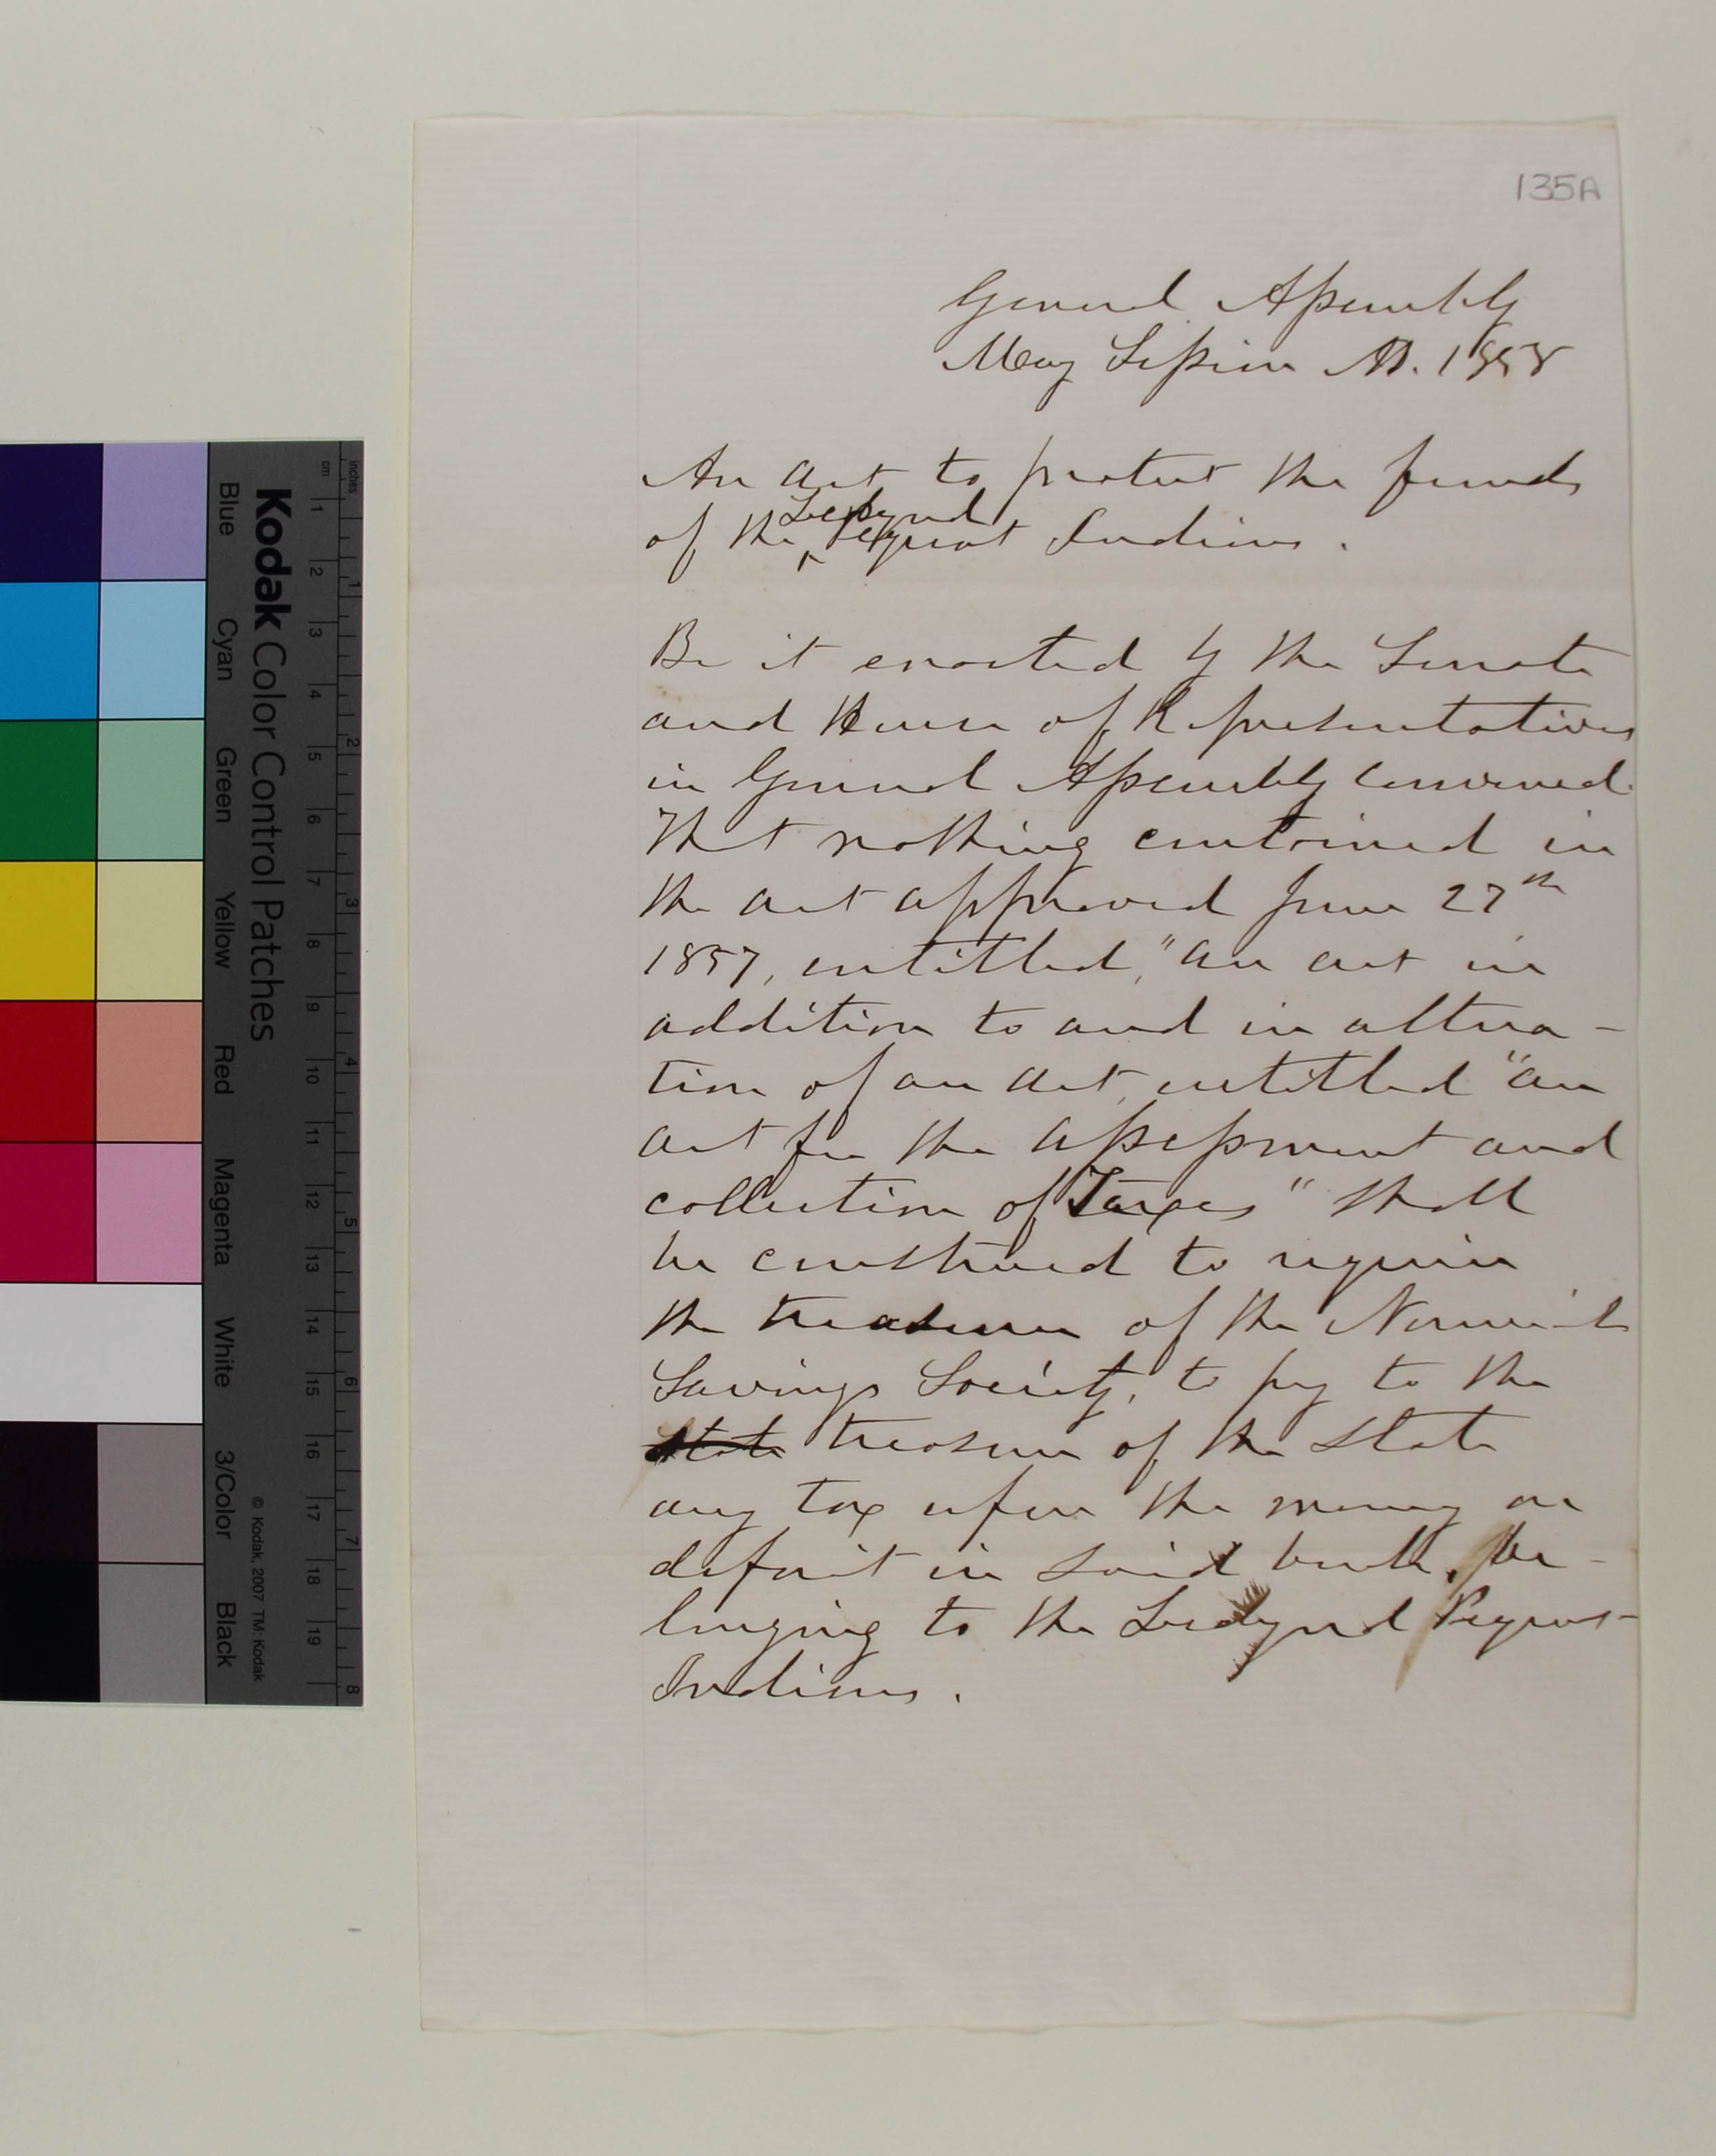 135A
General Assembly
May Session AD. 1858
An act to protect the funds
Ledyard
of the ^ Pequot Indians.
Be it enacted by the Senate
and House of Representatives
in General Assembly convened.
That nothing contained in
the act approved June 27th
1857, entitled, "an act in
addition to and in altera-
tion of an act, entitled "an
act for the assessment and
collection of Taxes" shall
be construed to require
the treasurer of the Norwich
Savings Society, to pay to the
state treasurer of the State
any tax upon the money on
deposit in said bank, be-
longing to the Ledyard Pequot
Indians.
Kodak Color Control Patches
© Kodak, 2007 TM: Kodak
Blue
Cyan
Green
Yellow
Red
Magenta
White
3/Color
Black
inches
1
2
3
4
5
6
7
8
cm
1
2
3
4
5
6
7
8
9
10
11
12
13
14
15
16
17
18
19